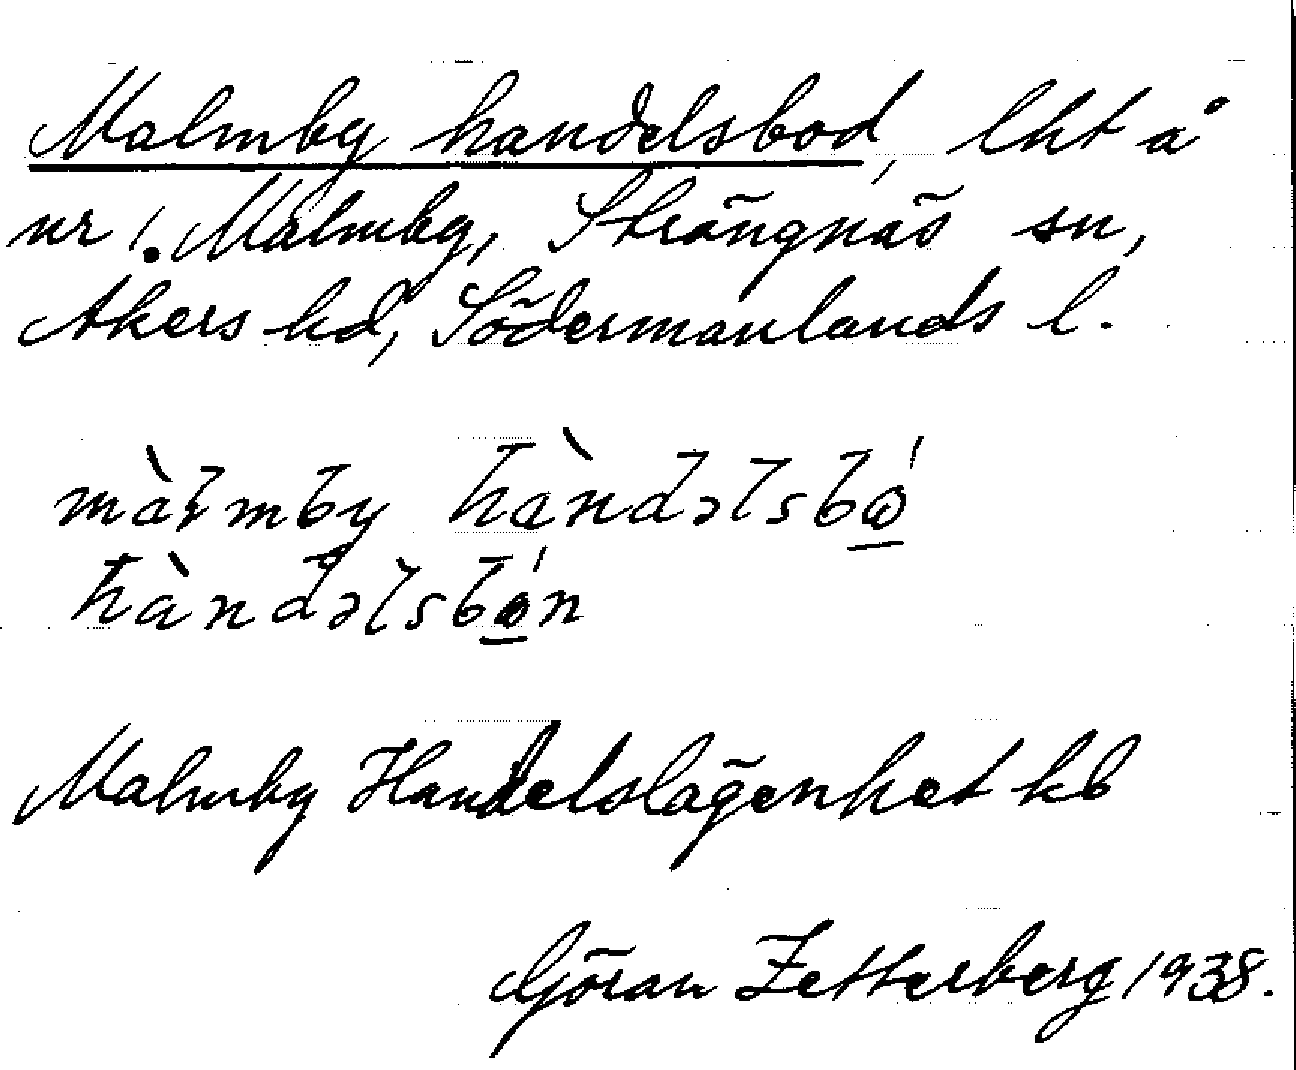 Malmby handelsbod, lht å
nr 1. Malmby, Strängnäs sn,
Åkers hd, Södermanlands l.
màlmby hàndəlsbó̲
hàndəlsbó̲n
Malmby Handelslägenhet kb
Göran Zetterberg 1938.